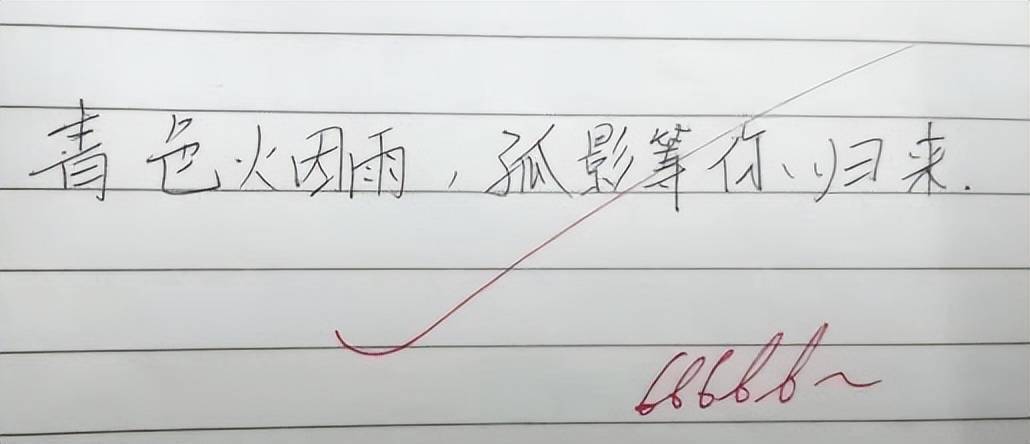 青色火因雨，孤影等你归来.
66666~